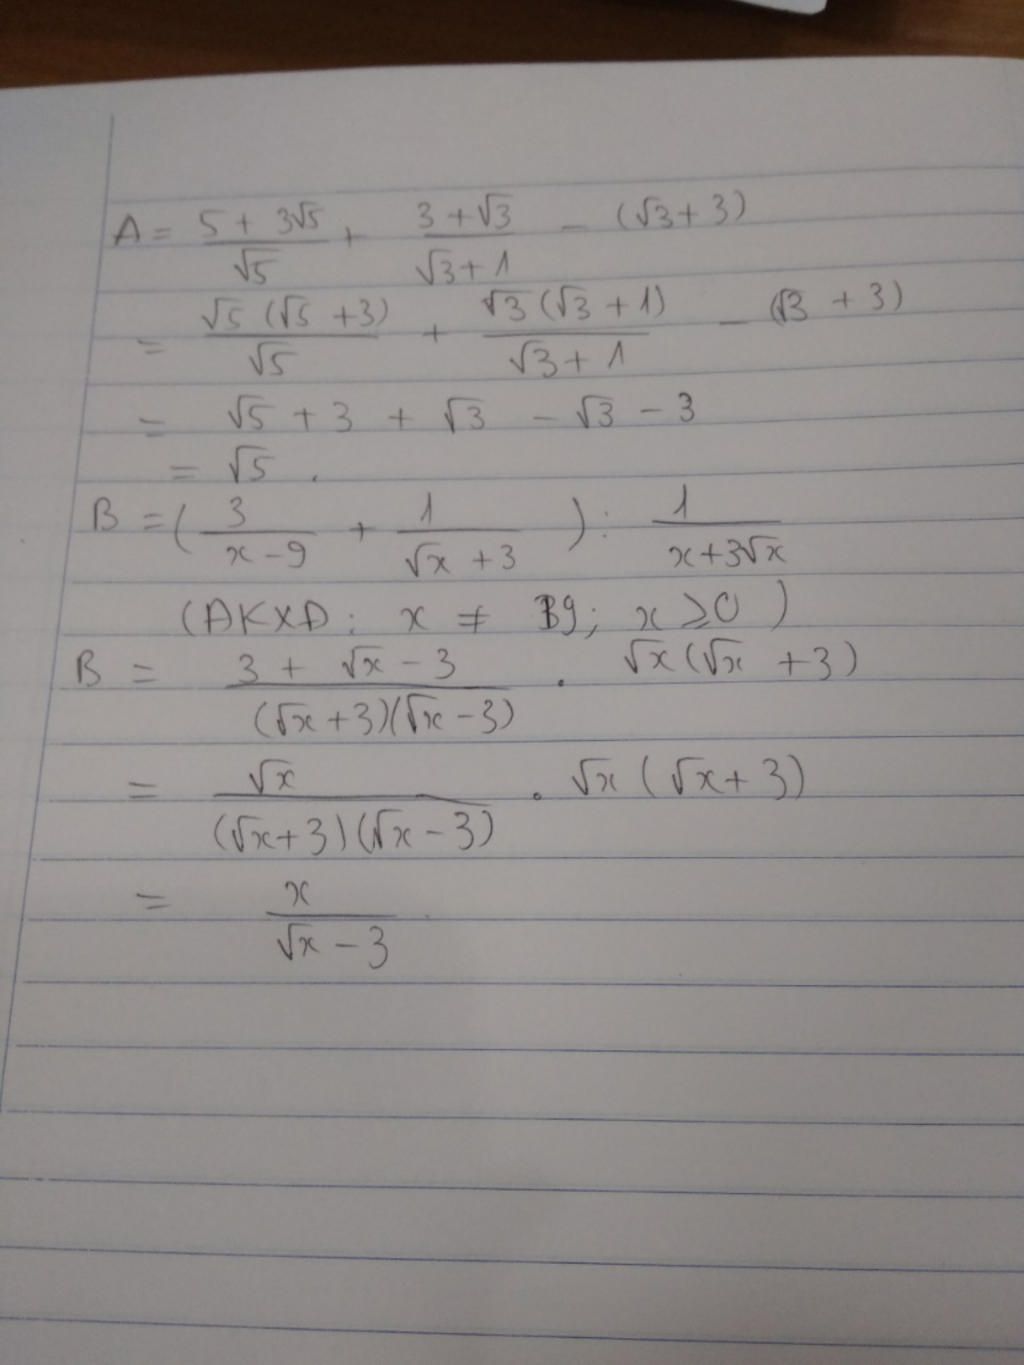 A = \frac{5 + 3√5}{√5} + \frac{3 + √3}{√3 + 1} - (√3 + 3)
= \frac{√5 (√5 + 3)}{√5} + \frac{√3 (√3 + 1)}{√3 + 1} - (√3 + 3)
= √5 + 3 + √3 - √3 - 3
= √5 .
B = ( \frac{3}{x - 9} + \frac{1}{√x + 3} ) : \frac{1}{x + 3√x}
(ĐKXĐ : x ≠ 9 ; x ≥ 0 )
B = \frac{3 + √x - 3}{(√x + 3)(√x - 3)} . √x (√x + 3)
= \frac{√x}{(√x + 3)(√x - 3)} . √x (√x + 3)
= \frac{x}{√x - 3}